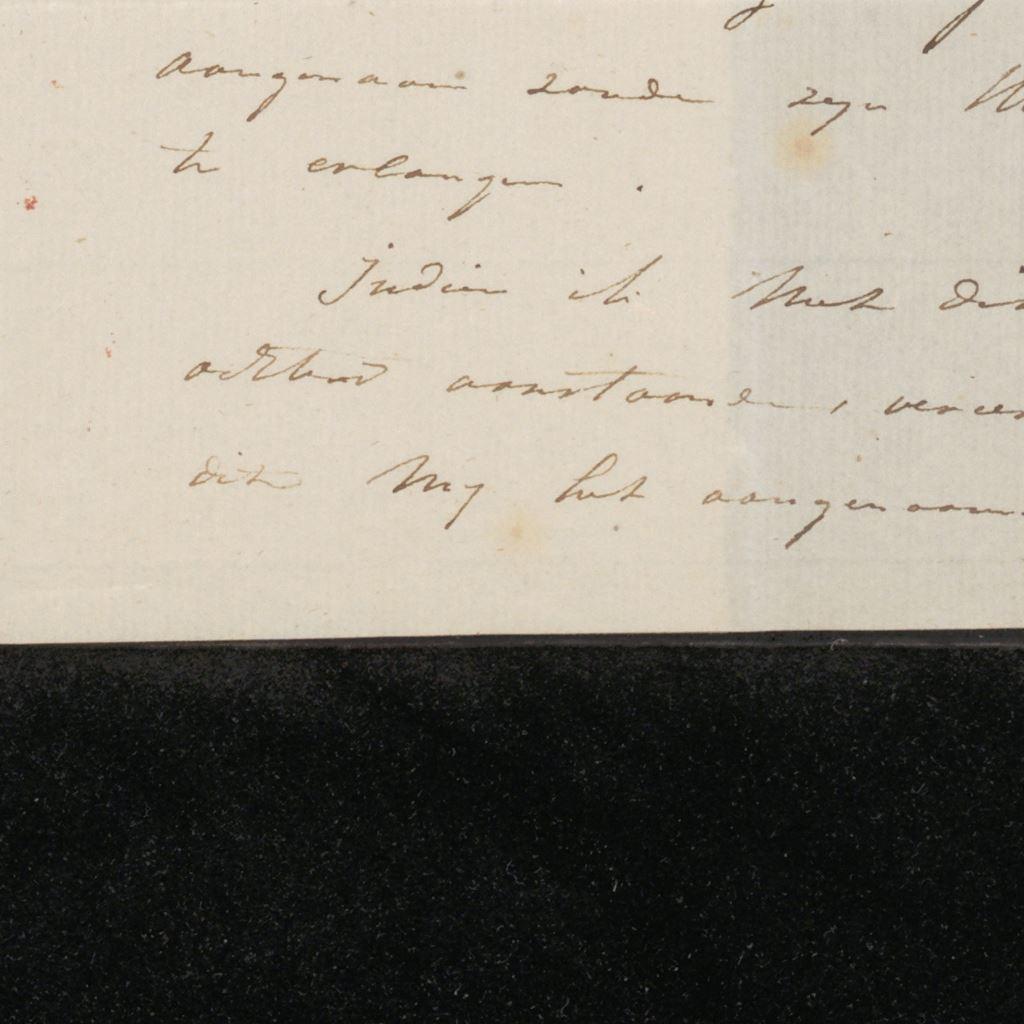 aangenaam zoude zyn
te erlangen.
Indien ik Met
aanstaande,
dit My het aangenaam